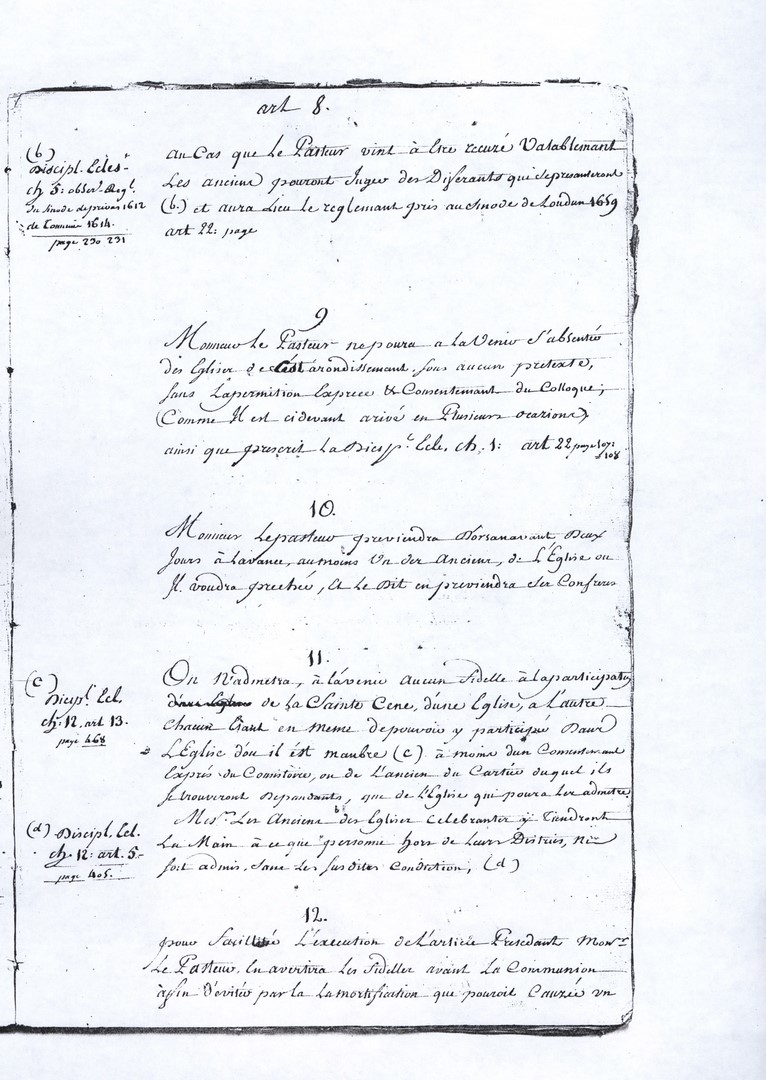 art 8.
(b)
Discipl. Ecles.
ch 5: observ. Regl.
du Sinode de privas 1612
de Tonneins 1614.
page 230 231
au Cas que Le Pasteur vint à Etre recuzé Valablemant
Les anciens pouront Juger des Diferants qui se presanteront
(b.) et aura Lieu le reglemant pris au Sinode de Loudun 1659
art 22: page
9
Monsieur Le Pasteur ne poura a la Venir S'absenter
des Eglises de cest arondissemant, sous aucun pretexte,
sans La permition Exprece & Consentemant du Colloque;
(Comme Il est cidevant arivé en Plusieurs ocazions)
ainsi que prescrit La Dicipe. Ecle. ch. 1: art 22 page 107:
108
10.
Monsieur Le pasteur previendra Dorsanavant Deux
Jours à Lavance, aumoins Un des Anciens, de L'Eglise ou
Il voudra precher, & Le Dit en previendra Ses Confreres
11.
(c)
Dicipl. Ecl.
ch: 12. art 13.
page 468
On N'admetra, à lavenir aucun fidelle à la participation
de La Sainte Cene, dune Eglise, a L'autre
Chacun Etant en meme depouvoir y participer Dans
L'Eglise dou il ést manbre (c) à moins dun Consentemant
Exprès du Consistoire, ou de L'ancien du Cartier duquel ils
se trouveront Dependants, que de L'Eglise qui poura Les admetre
(d) Discipl. Ecl.
ch 12: art. 5.
page 405.
Mesrs. Les Anciens des Eglises Celebrantes y Tiendront
La Main à ce que personne hors de Leurs Districs, ne
soit admis, sans Les susdites Condiction, (d)
12.
pour faciliter L'execution de L'article Presedant Monsr
Le Pasteur, En avertira Les fidelles avant La Communion
àfin D'eviter par la La mortification que pouroit Cauzer un